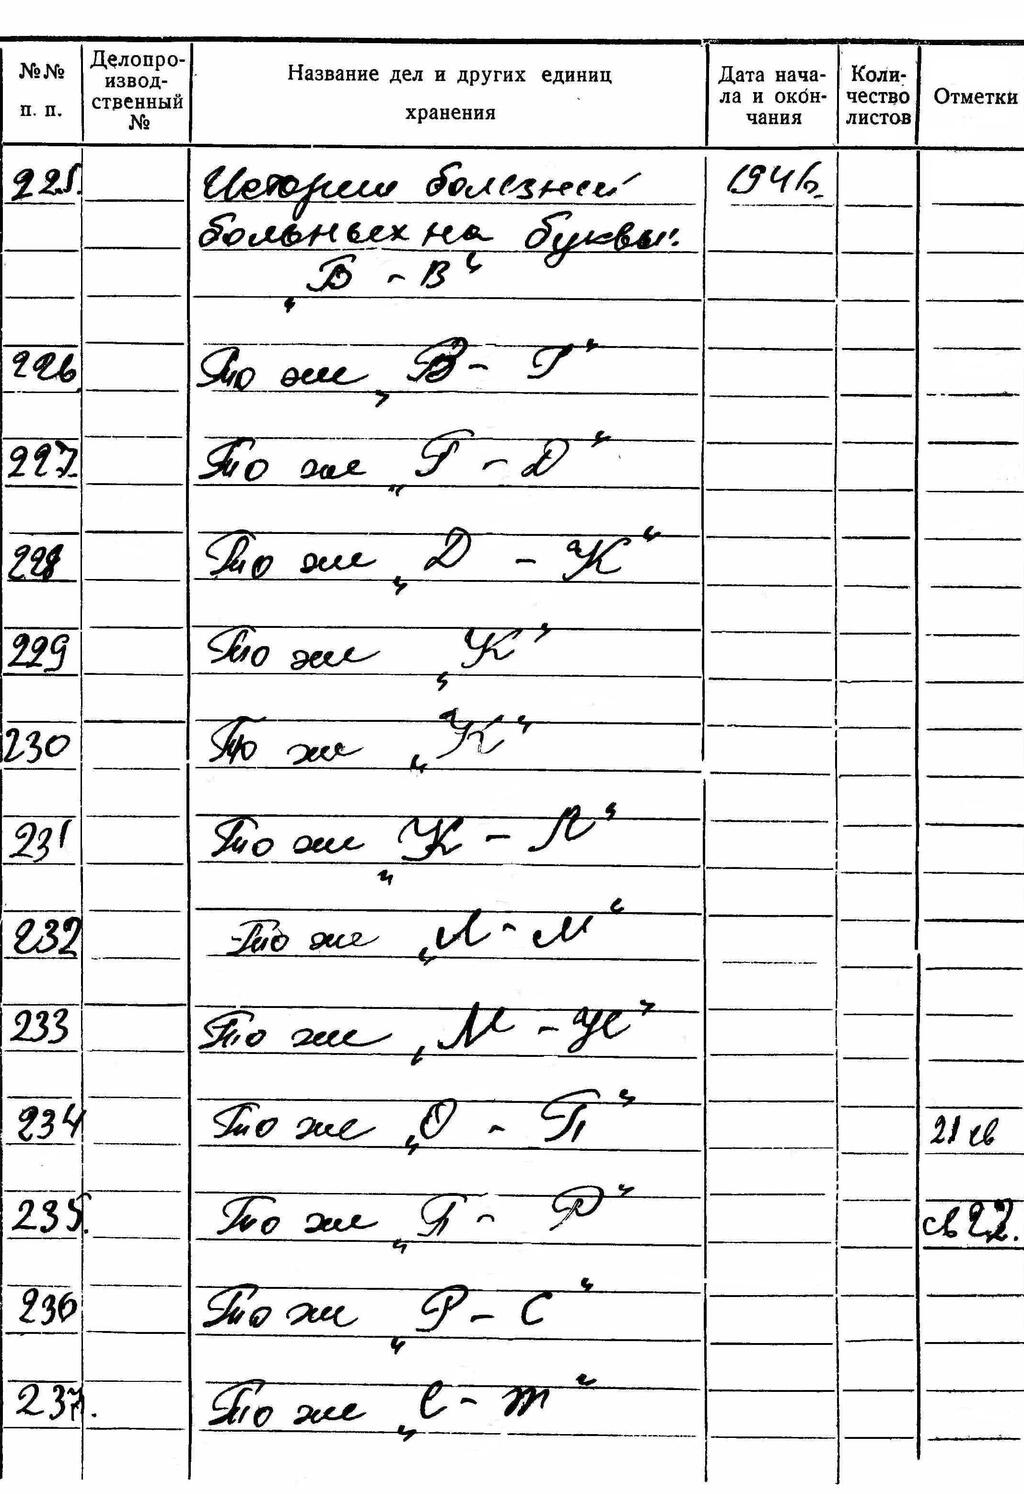 №№ п. п.
Делопро-
извод-
ственный
№
Название дел и других единиц
хранения
Дата нача-
ла и окон-
чания
Коли-
чество
листов
Отметки
225. Истории болезней 1946.
больных на буквы:
„Б - В“
226 То же „В - Г“
227 То же „Г - Д“
228 То же „Д - К“
229 То же „К“
230 То же „К“
231 То же „К - Л“
232 То же „Л - М“
233 То же „М -
234 То же „О - П“ 21 св
235. То же „П - Р“ св 22.
236 То же „Р - С“
237. То же „С - т“